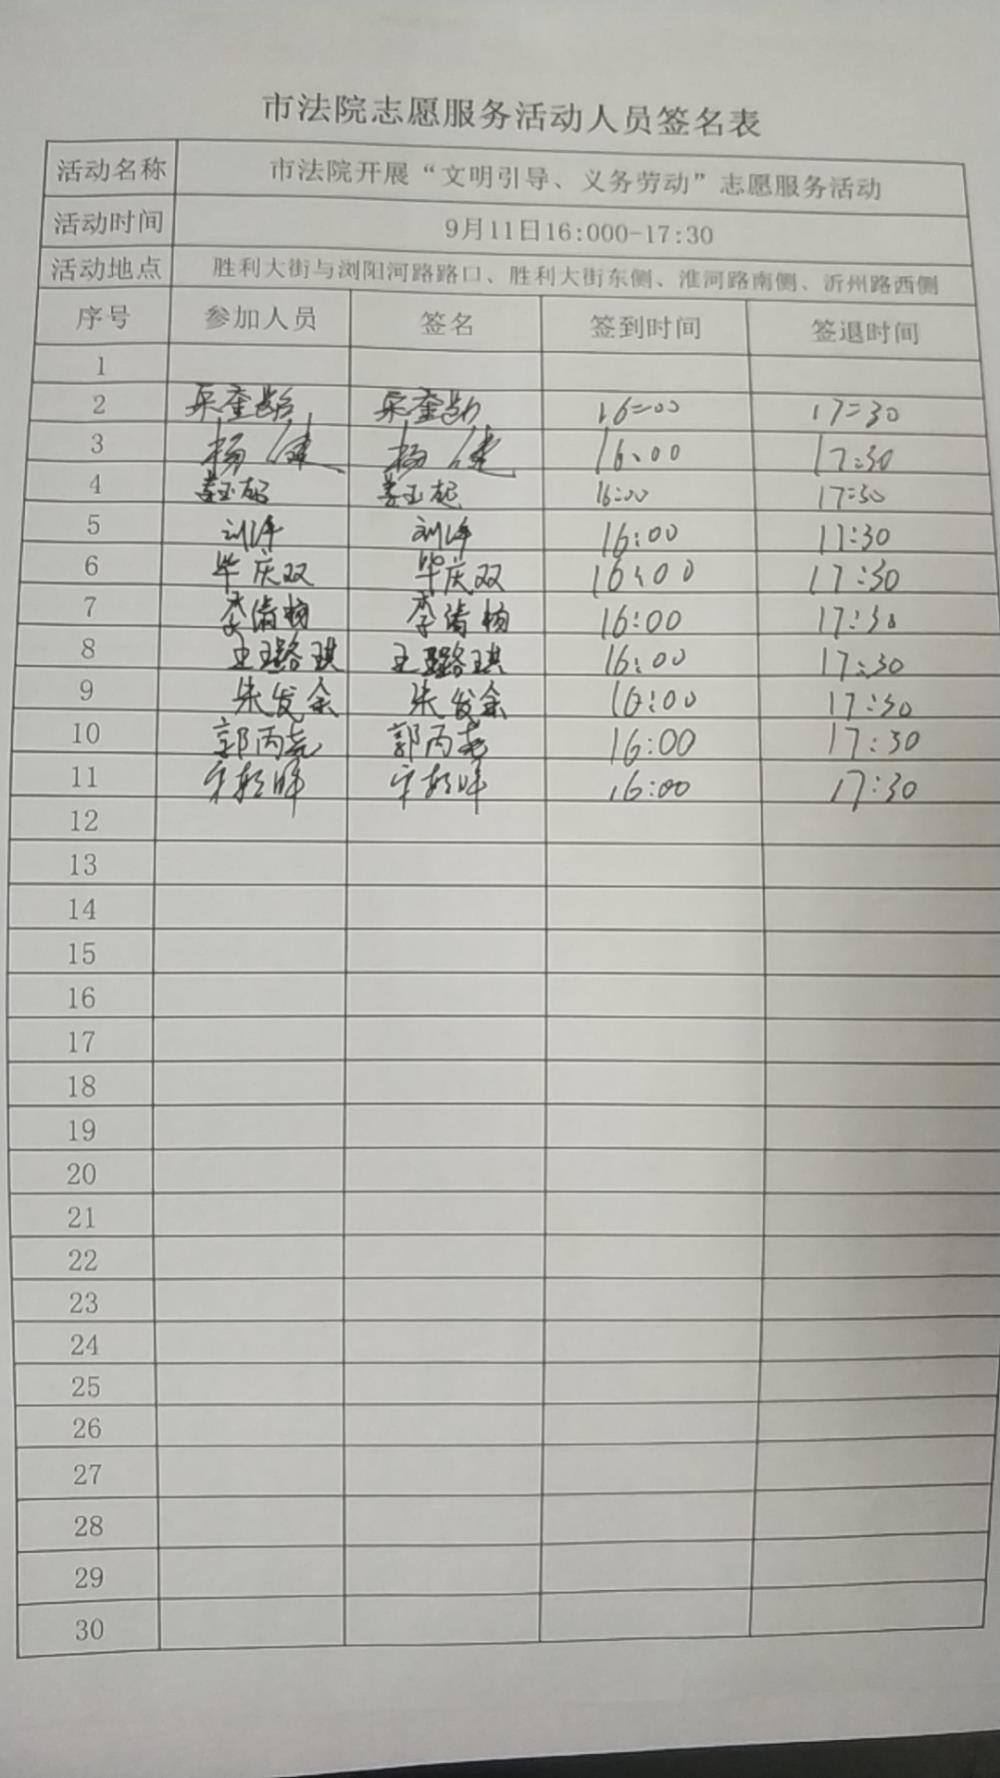 市法院志愿服务活动人员签名表
活动名称 市法院开展“文明引导、义务劳动”志愿服务活动
活动时间 9月11日16:000-17:30
活动地点 胜利大街与浏阳河路路口、胜利大街东侧、淮河路南侧、沂州路西侧
序号 参加人员 签名 签到时间 签退时间
1
2 16:00 17:30
3 杨健 杨健 16:00 17:30
4 姜玉起 姜玉起 16:00 17:30
5 16:00 17:30
6 毕庆双 毕庆双 16:00 17:30
7 李清杨 李清杨 16:00 17:30
8 王璐琪 王璐琪 16:00 17:30
9 朱发余 朱发余 16:00 17:30
10 郭丙尧 郭丙尧 16:00 17:30
11 16:00 17:30
12
13
14
15
16
17
18
19
20
21
22
23
24
25
26
27
28
29
30